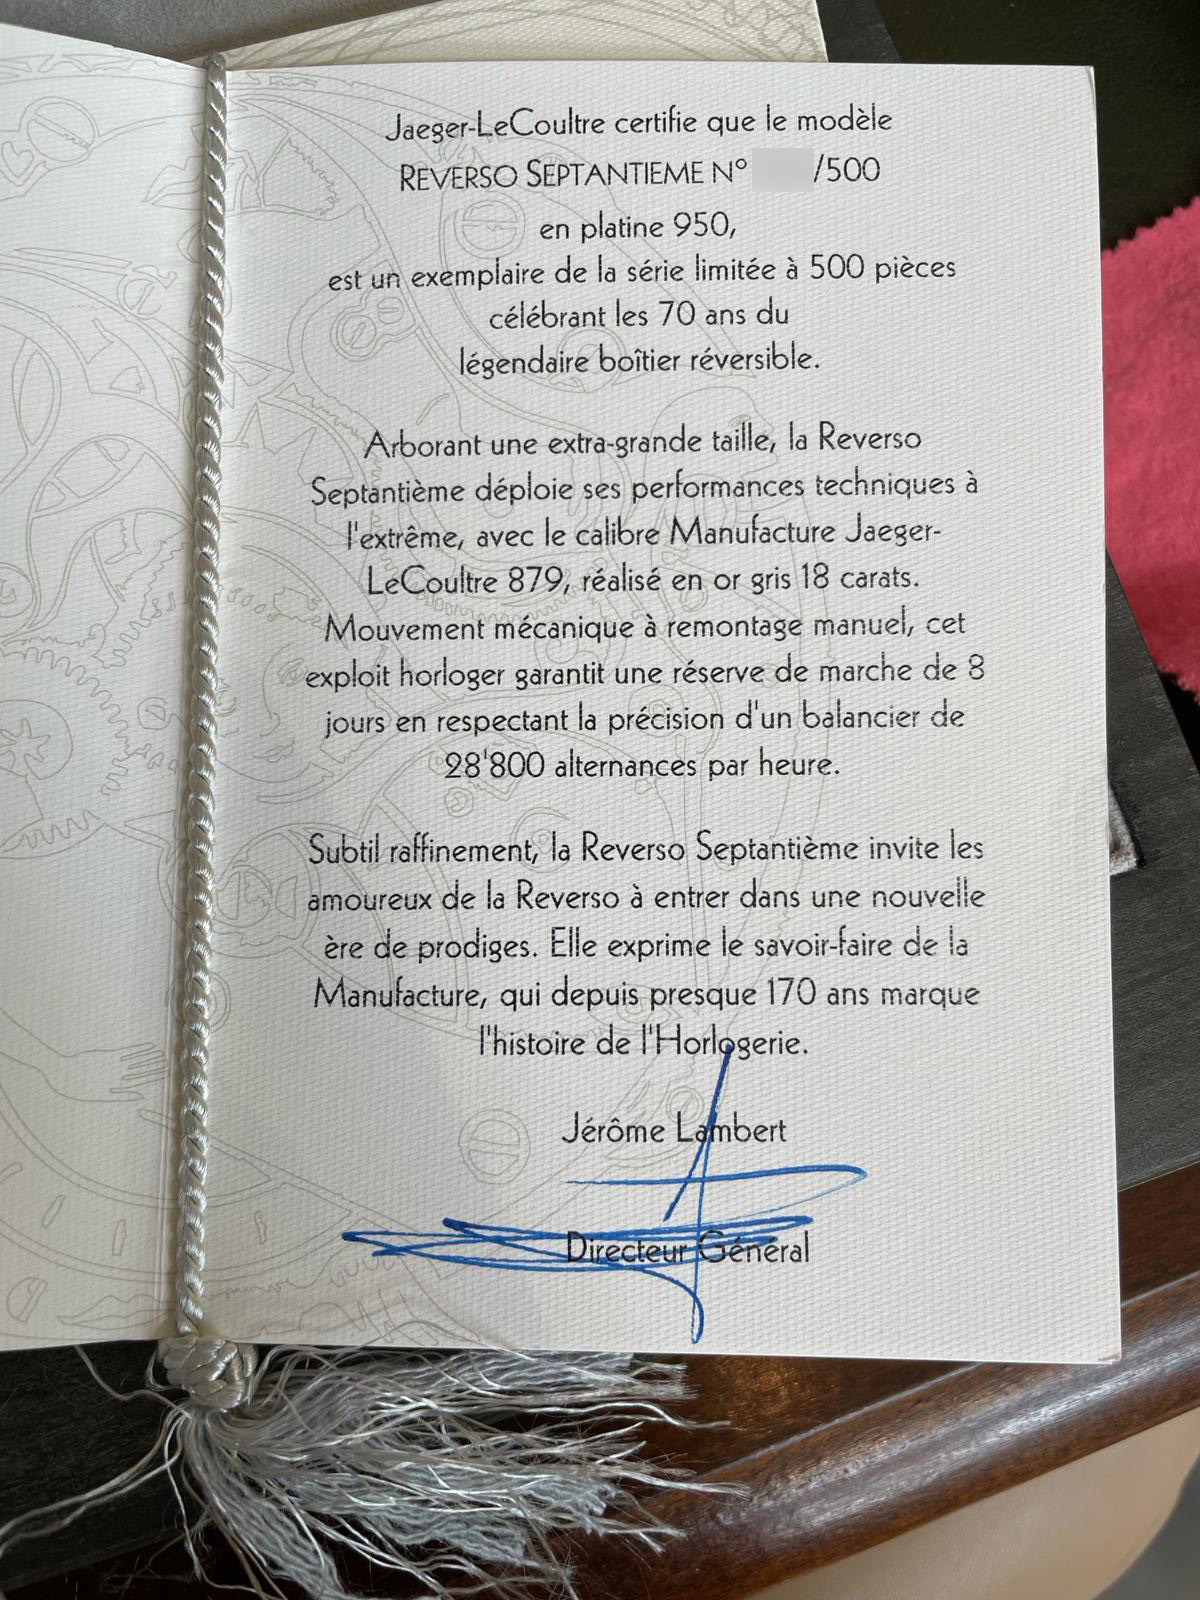 Jaeger-LeCoultre certifie que le modèle
REVERSO SEPTANTIEME N° /500
en platine 950,
est un exemplaire de la série limitée à 500 pièces
célébrant les 70 ans du
légendaire boîtier réversible.
Arborant une extra-grande taille, la Reverso
Septantième déploie ses performances techniques à
l'extrême, avec le calibre Manufacture Jaeger-
LeCoultre 879, réalisé en or gris 18 carats.
Mouvement mécanique à remontage manuel, cet
exploit horloger garantit une réserve de marche de 8
jours en respectant la précision d'un balancier de
28'800 alternances par heure.
Subtil raffinement, la Reverso Septantième invite les
amoureux de la Reverso à entrer dans une nouvelle
ère de prodiges. Elle exprime le savoir-faire de la
Manufacture, qui depuis presque 170 ans marque
l'histoire de l'Horlogerie.
Jérôme Lambert
Directeur Général